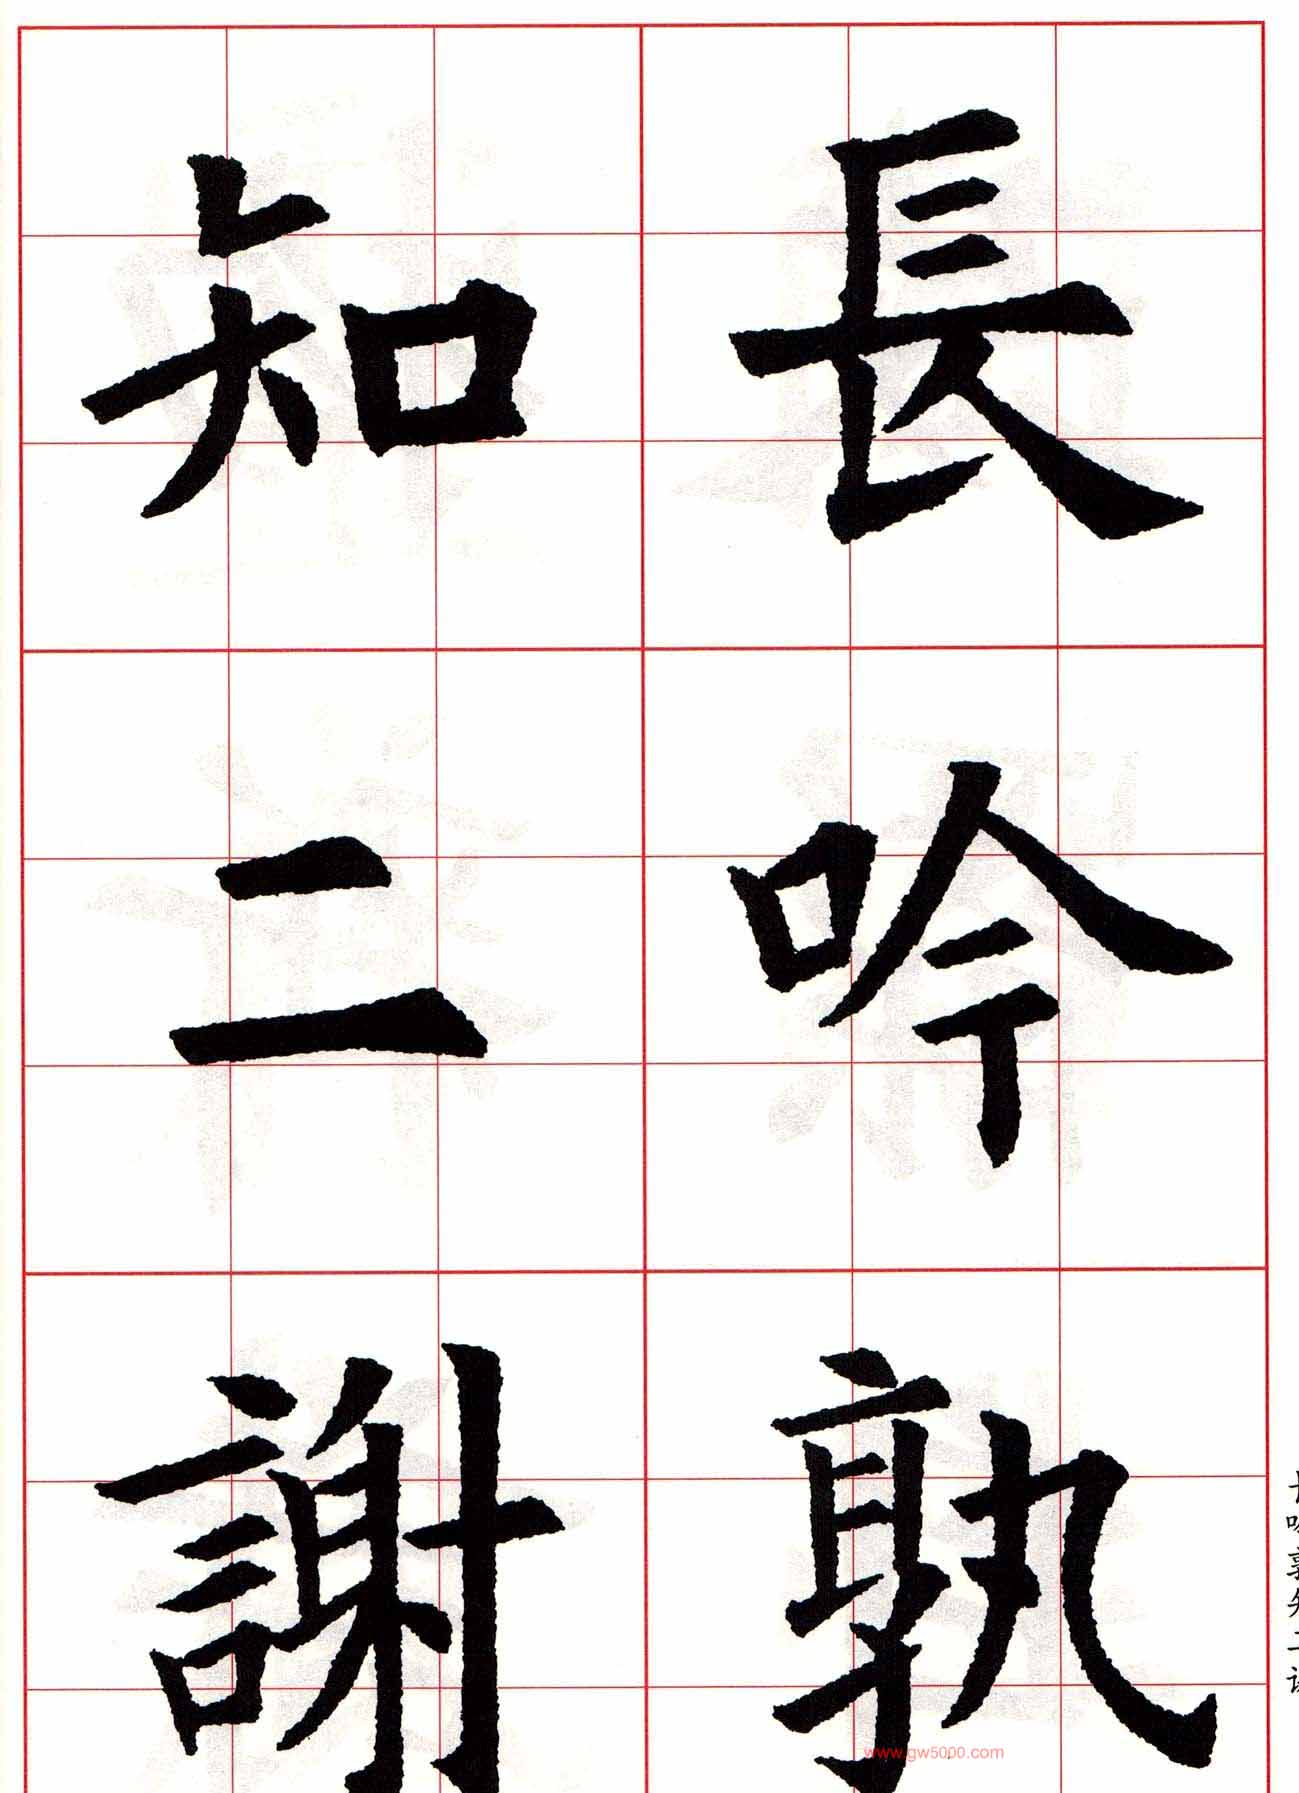 長吟孰
知二謝
www.gw5000.com